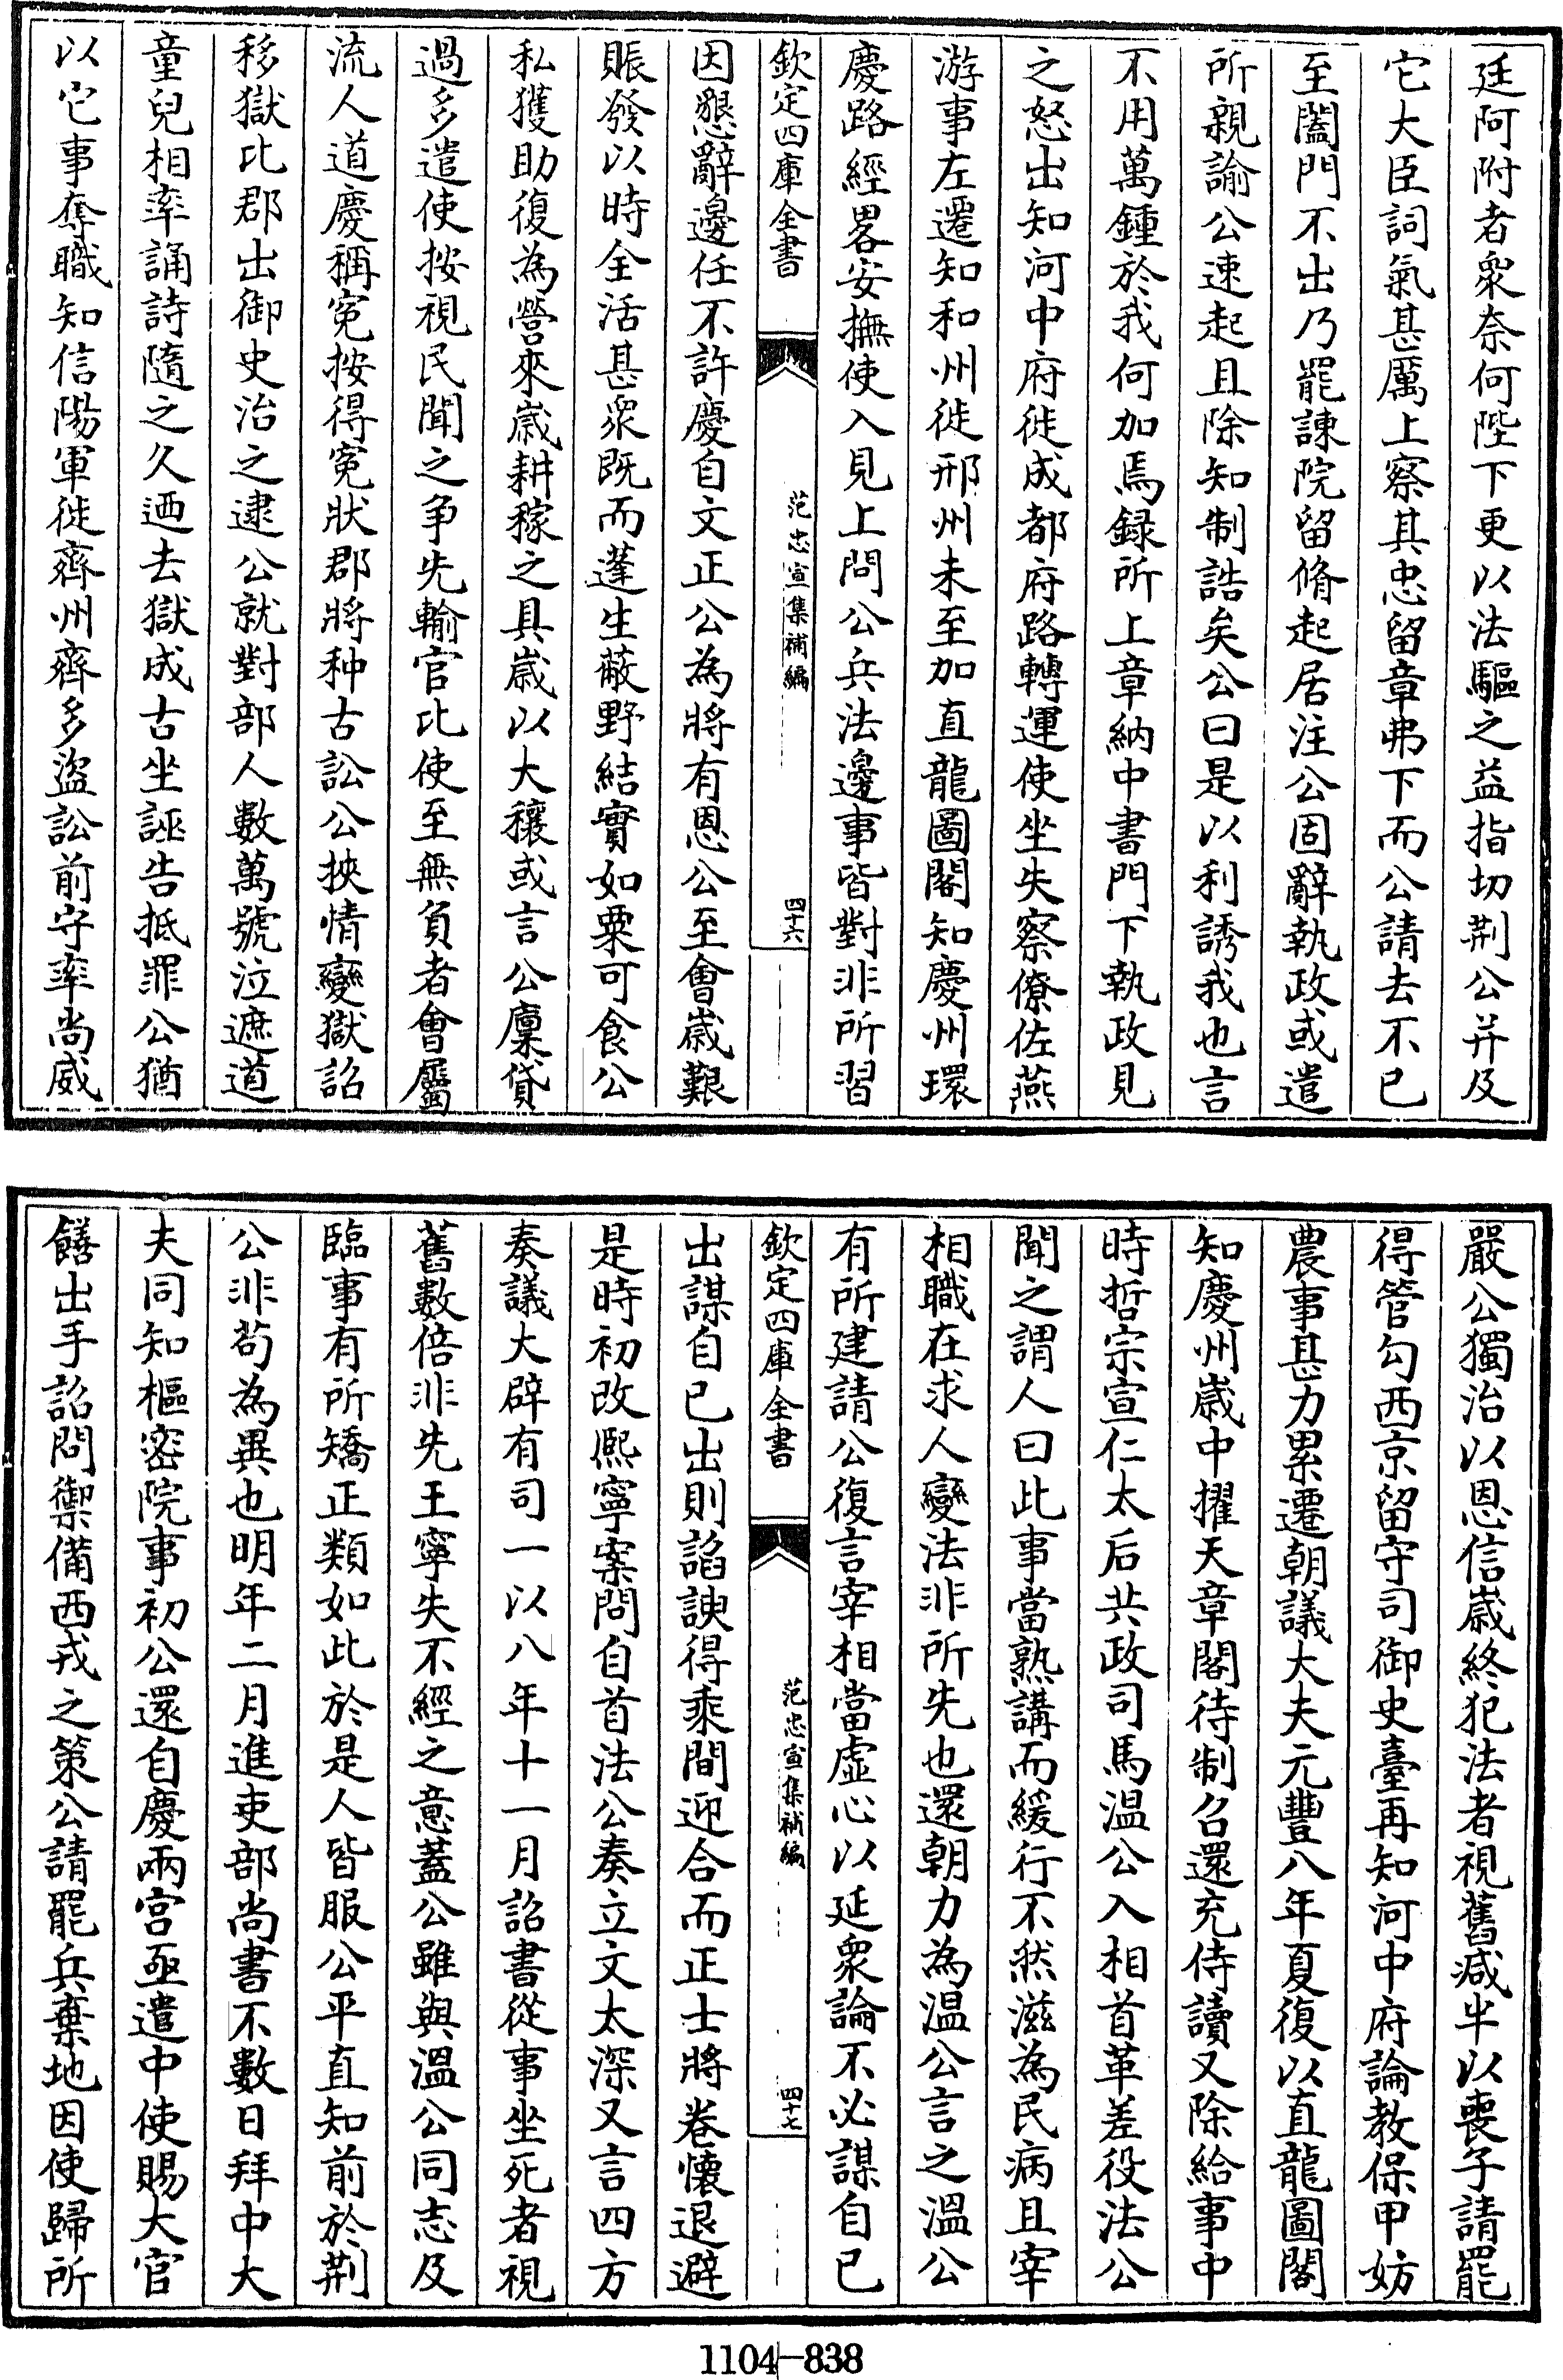 廷阿附者衆奈何陛下更以法驅之益指切荆公并及
它大臣詞氣甚厲上察其忠留章弗下而公請去不已
至闔門不出乃罷諫院留脩起居注公固辭執政或遣
所親諭公速起且除知制誥矣公曰是以利誘我也言
不用萬鍾於我何加焉録所上章納中書門下執政見
之怒出知河中府徙成都府路轉運使坐失察僚佐燕
游事左遷知和州徙邢州未至加直龍圖閣知慶州環
慶路經畧安撫使入見上問公兵法邊事皆對非所習
欽定四庫全書
范忠宣集補編
四十六
因懇辭邊任不許慶自文正公為將有恩公至會歲艱
賑發以時全活甚衆既而蓬生蔽野結實如粟可食公
私獲助復為營來歲耕稼之具歲以大穰或言公廩貸
過多遣使按視民聞之争先輸官比使至無負者會屬
流人道慶稱寃按得寃狀郡將种古訟公挾情變獄詔
移獄比郡出御史治之逮公就對部人數萬號泣遮道
童兒相率誦詩隨之久迺去獄成古坐誣告抵罪公猶
以它事奪職知信陽軍徙齊州齊多盜訟前守率尚威
嚴公獨治以恩信歲終犯法者視舊減半以喪子請罷
得管勾西京留守司御史臺再知河中府論教保甲妨
農事甚力累遷朝議大夫元豐八年夏復以直龍圖閣
知慶州歲中擢天章閣待制召還充侍讀又除給事中
時哲宗宣仁太后共政司馬温公入相首革差役法公
聞之謂人曰此事當熟講而緩行不然滋為民病且宰
相職在求人變法非所先也還朝力為温公言之溫公
有所建請公復言宰相當虚心以延衆論不必謀自已
欽定四庫全書
范忠宣集補編
四十七
出謀自已出則諂諛得乘間迎合而正士將卷懷退避
是時初改熈寧案問自首法公奏立文太深又言四方
奏議大辟有司一以八年十一月詔書從事坐死者視
舊數倍非先王寧失不經之意蓋公雖與溫公同志及
臨事有所矯正類如此於是人皆服公平直知前於荆
公非苟為異也明年二月進吏部尚書不數日拜中大
夫同知樞密院事初公還自慶兩宫亟遣中使賜大官
饍出手詔問禦備西戎之策公請罷兵棄地因使歸所
1104-838